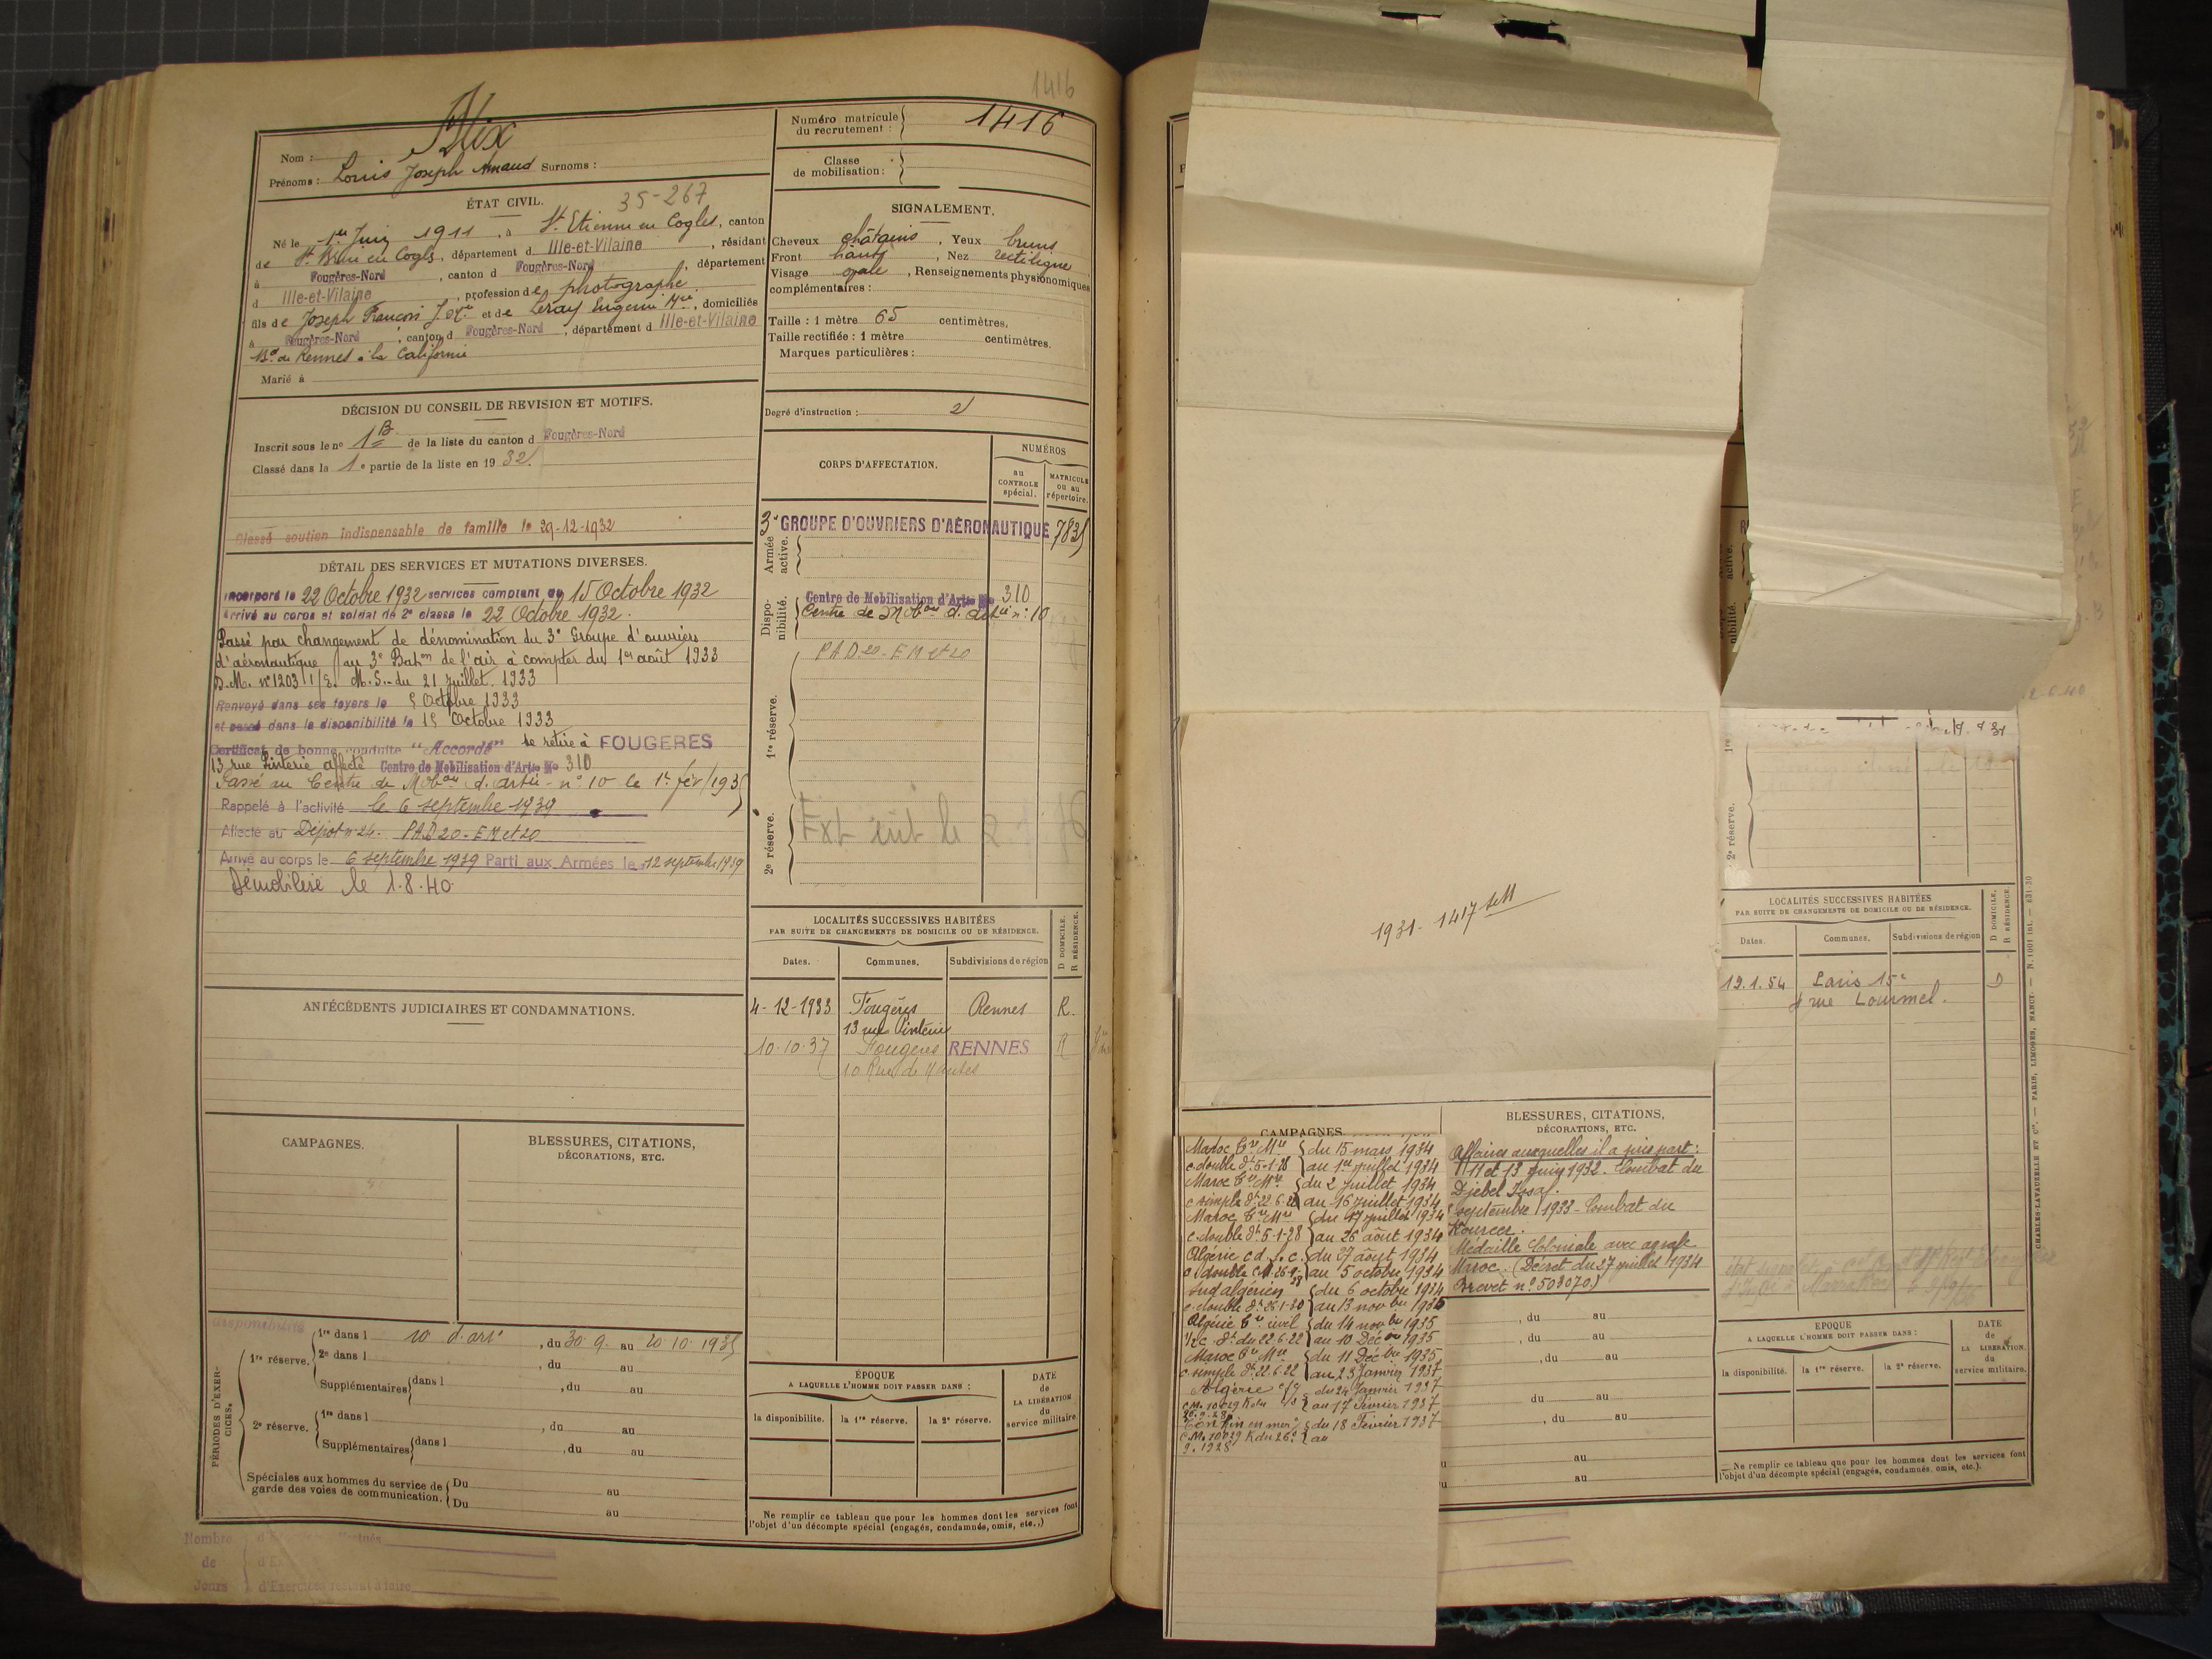 1416
Nom : Alix
Prénoms : Louis Joseph Amand Surnoms :
Numéro matricule du recrutement : 1416
Classe de mobilisation :
ÉTAT CIVIL.
35-267
Né le 1er Juin 1911, à St Etienne en Cogles, canton
de St Brice en Cogles, département d Ille-et-Vilaine, résidant
à Fougères-Nord, canton d Fougères-Nord, département
d Ille-et-Vilaine, profession de photographe
fils de Joseph François J. et de Leray Eugénie Mie, domiciliés
à Fougères-Nord, canton d Fougères-Nord, département d Ille-et-Vilaine
Bd de Rennes à la Californie
Marié à
SIGNALEMENT.
Cheveux châtains, Yeux bruns
Front haut, Nez rectiligne
Visage ovale, Renseignements physionomiques
complémentaires :
Taille : 1 mètre 65 centimètres.
Taille rectifiée : 1 mètre centimètres.
Marques particulières :
Degré d'instruction : 2
DÉCISION DU CONSEIL DE REVISION ET MOTIFS.
Inscrit sous le no 1 B de la liste du canton d Fougères-Nord
Classé dans la 1e partie de la liste en 1932.
Classé soutien indispensable de famille le 29-12-1932
DÉTAIL DES SERVICES ET MUTATIONS DIVERSES.
Incorporé le 22 Octobre 1932 services comptant du 15 Octobre 1932
Arrivé au corps et soldat de 2e classe le 22 Octobre 1932.
Passé par changement de dénomination du 3e Groupe d'ouvriers
d'aéronautique au 3e Baton de l'air à compter du 1er août 1933
D.M. no 1203 1/E. M.S. du 21 Juillet 1933
Renvoyé dans ses foyers le 5 Octobre 1933
et passé dans la disponibilité le 15 Octobre 1933
Certificat de bonne conduite "Accordé" se retire à FOUGERES
13 rue Pinterie affecté Centre de Mobilisation d'Artie No 310
Passé au Centre de Mobon d'artie no 10 le 1er fév 1935
Rappelé à l'activité le 6 septembre 1939
Affecté au Dépôt no 24. P.A.D 20 - E M et 20
Arrivé au corps le 6 septembre 1939 Parti aux Armées le 12 septembre 1939
Démobilisé le 1.8.40
CORPS D'AFFECTATION.
NUMÉROS
au CONTROLE spécial.
MATRICULE ou au répertoire.
Armée active.
3e GROUPE D'OUVRIERS D'AÉRONAUTIQUE 7835
Disponibilité.
Centre de Mobilisation d'Artie No 310
Centre de Mobon d. artie no 10
1re réserve.
P A D. 20 - E M et 20
2e réserve.
LOCALITÉS SUCCESSIVES HABITÉES
PAR SUITE DE CHANGEMENTS DE DOMICILE OU DE RÉSIDENCE.
D DOMICILE.
R RÉSIDENCE.
Dates. Communes. Subdivisions de région
4-12-1933 Fougères Rennes R.
13 rue Pinterie
10.10.37 Fougères RENNES R
10 Rue de Nantes
ANTÉCÉDENTS JUDICIAIRES ET CONDAMNATIONS.
CAMPAGNES.
BLESSURES, CITATIONS,
DÉCORATIONS, ETC.
PÉRIODES D'EXERCICES.
disponibilité
1re réserve. 1re dans l 10 d'art, du 30.9. au 20.10.1935
2e dans l, du au
Supplémentaires dans l, du au
2e réserve. 1re dans l, du au
Supplémentaires dans l, du au
Spéciales aux hommes du service de garde des voies de communication. Du au
Du au
ÉPOQUE
A LAQUELLE L'HOMME DOIT PASSER DANS :
la disponibilité. la 1re réserve. la 2e réserve.
DATE de LA LIBÉRATION du service militaire
Ne remplir ce tableau que pour les hommes dont les services font
l'objet d'un décompte spécial (engagés, condamnés, omis, etc.,)
Nombre
de
Jours d'Exercices restant à faire
1931. 1417
CAMPAGNES.
Maroc du 15 mars 1934
c. double dt 5-1-28 au 1er juillet 1934
Maroc du 2 juillet 1934
c. simple dt 22.6.22 au 16 juillet 1934
Maroc du 17 juillet 1934
c. double dt 5-1-28 au 26 août 1934
Algérie du 27 août 1934
c. double au 5 octobre 1934
Sud algérien du 6 octobre 1934
c. double au 13 novbre 1935
Algérie civil du 14 novbre 1935
1/2 c. dt du 22.6.22 au 10 Décbre 1935
Maroc du 11 Décbre 1935
c. simple dt 22.6.22 au 23 Janvier 1937
Algérie du 24 Janvier 1937
au 17 Février 1937
Tonkin en mer du 18 Février 1937
C.M. 10029 K du 26. au
9.1928
BLESSURES, CITATIONS,
DÉCORATIONS, ETC.
Affaires auxquelles il a pris part :
11 et 13 juin 1932. Combat du
Djebel
septembre 1933 - Combat du
Kourcer.
Médaille Coloniale avec agrafe
Maroc. (Décret du 27 juillet 1934
Brevet no 508070)
, du au
, du au
, du au
du au
, du au
au
au
2e réserve.
LOCALITÉS SUCCESSIVES HABITÉES
PAR SUITE DE CHANGEMENTS DE DOMICILE OU DE RÉSIDENCE.
D DOMICILE.
R RÉSIDENCE.
Dates. Communes. Subdivisions de région
12.1.54 Paris 15e D
rue Lourmel.
ÉPOQUE
A LAQUELLE L'HOMME DOIT PASSER DANS :
la disponibilité. la 1re réserve. la 2e réserve.
DATE de LA LIBÉRATION. du service militaire.
Ne remplir ce tableau que pour les hommes dont les services font
l'objet d'un décompte spécial (engagés, condamnés, omis, etc.).
CHARLES-LAVAUZELLE ET Cie. — PARIS, LIMOGES, NANCY.